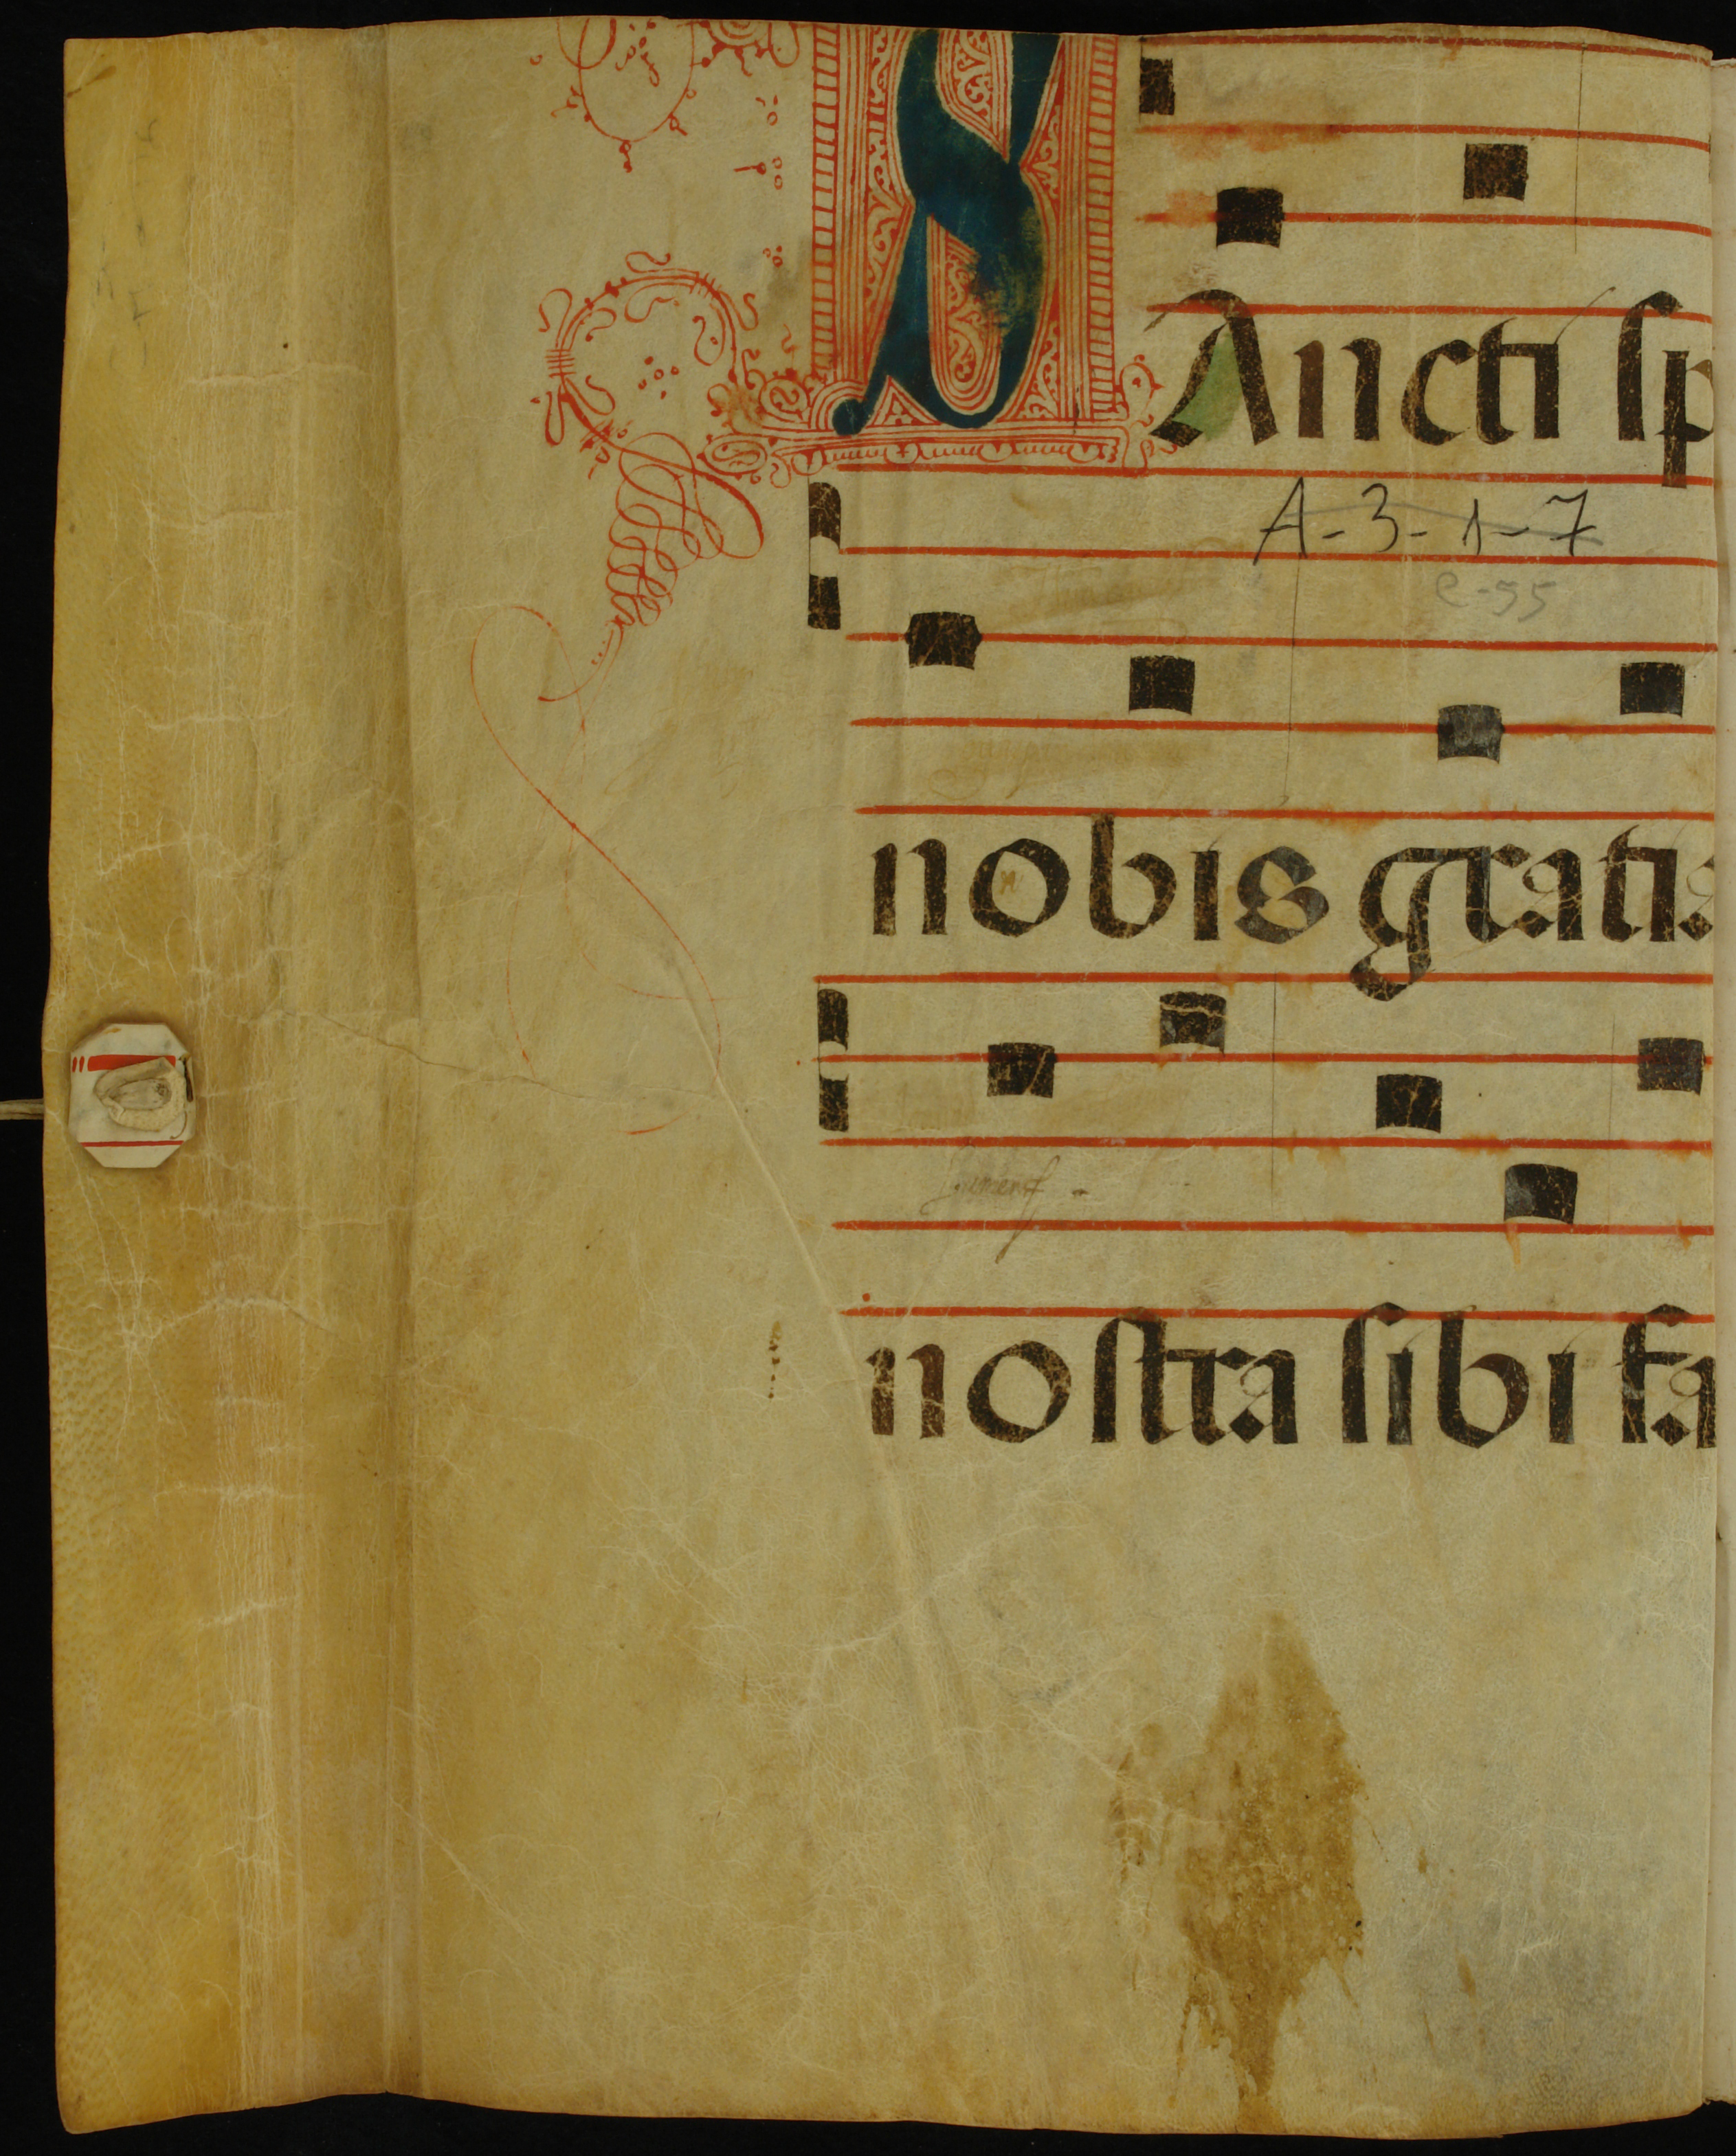 SAncti sp
A-3-1-7
e-55
nobis gratia
nostra sibi fa